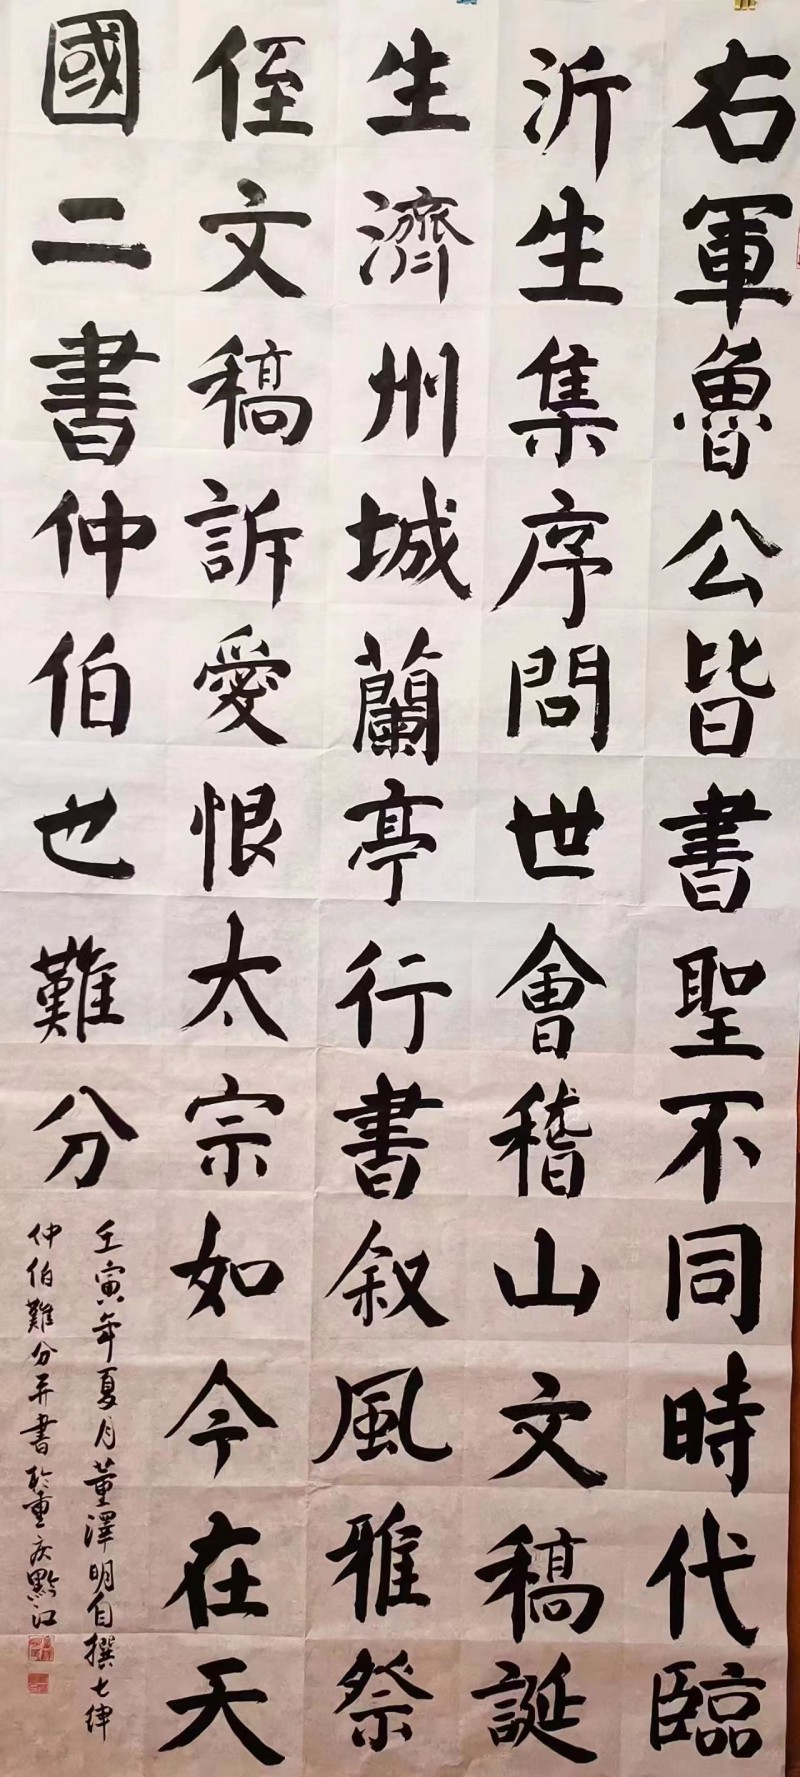 右軍魯公皆書聖不同時代臨
沂生集序問世會稽山文稿誕
生濟州城蘭亭行書叙風雅祭
侄文稿訴愛恨太宗如今在天
國二書仲伯也難分
壬寅年夏月董澤明自撰七律
仲伯難分并書於重庆黔江